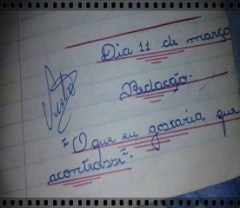 Dia 11 de março
Visto
Redacção.
"O que eu gostaria que
acontecesse".